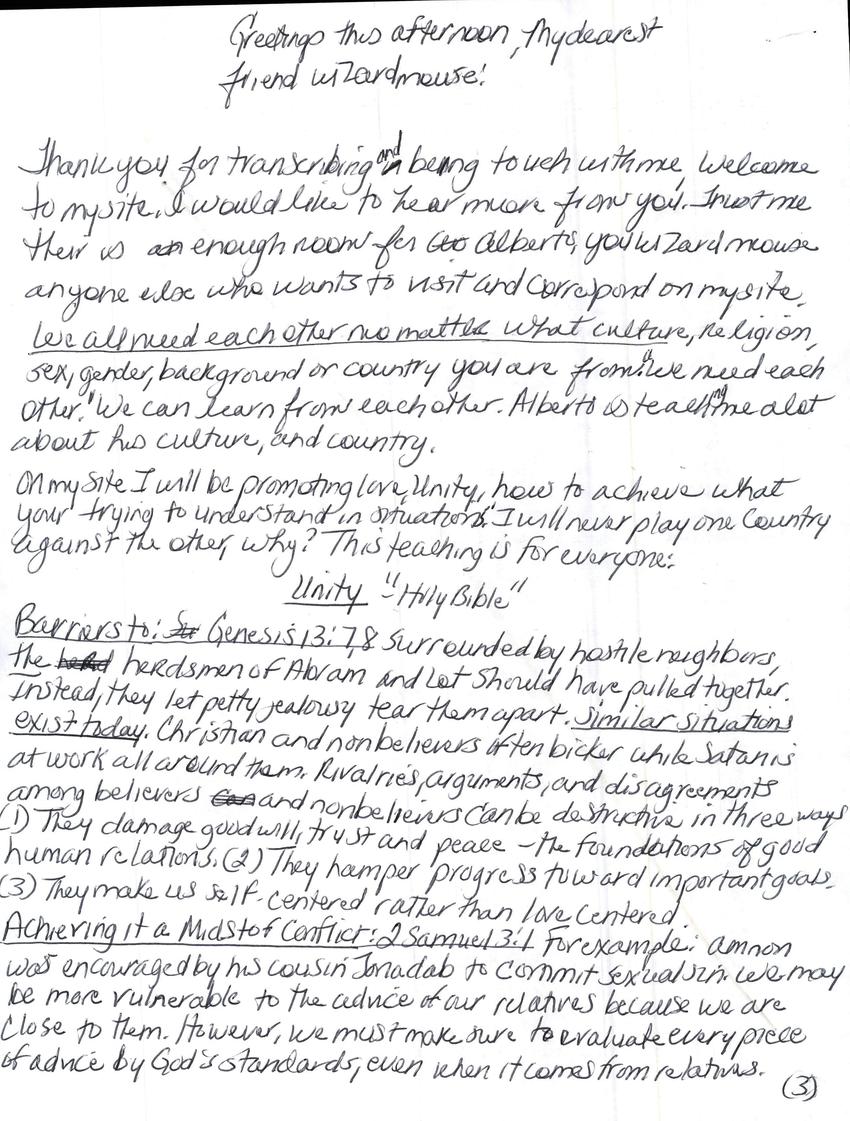 Greetings this afternoon, My dearest
friend wizardmouse!
Thank you for transcribing and in being touch with me, welcome
to my site. I would like to hear more from you. Trust me
their is enough room for Alberto, you wizardmouse
anyone else who wants to visit and correspond on my site.
We all need each other no matter what culture, religion,
sex, gender, background or country you are from. "We need each
other." We can learn from each other. Alberto is teaching me alot
about his culture, and country.
On my site I will be promoting love, Unity, how to achieve what
your trying to understand in situations". I will never play one Country
against the other, why? This teaching is for everyone:
Unity "Holy Bible"
Barriers to: Genesis 13:7,8 Surrounded by hostile neighbors,
the herdsmen of Abram and Lot should have pulled together.
Instead, they let petty jealousy tear them apart. Similar situations
exist today. Christian and nonbelievers often bicker while Satan is
at work all around them. Rivalries, arguments, and disagreements
among believers and nonbelievers can be destructive in three ways
(1) They damage goodwill, trust and peace - the foundations of good
human relations. (2) They hamper progress toward important goals.
(3) They make us self-centered rather than love centered.
Achieving it a Midst of Conflict: 2 Samuel 3:1 For example: amnon
was encouraged by his cousin Jonadab to commit sexual sin. we may
be more vulnerable to the advice of our relatives because we are
close to them. However, we must make sure to evaluate every piece
of advice by God's standards, even when it comes from relatives.
(3)